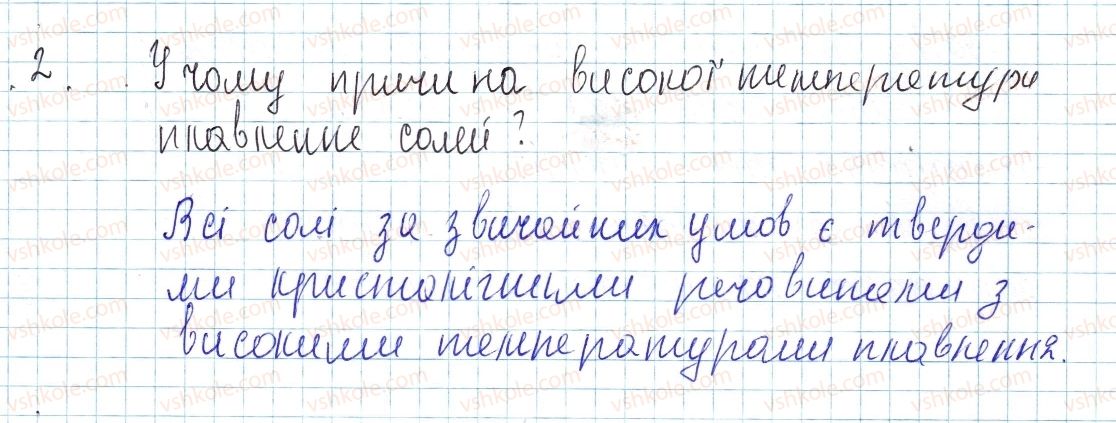 2. У чому причина високої температури
плавлення солей?
Всі солі за звичайних умов є тверди-
ми кристалічними речовинами з
високими температурами плавлення.